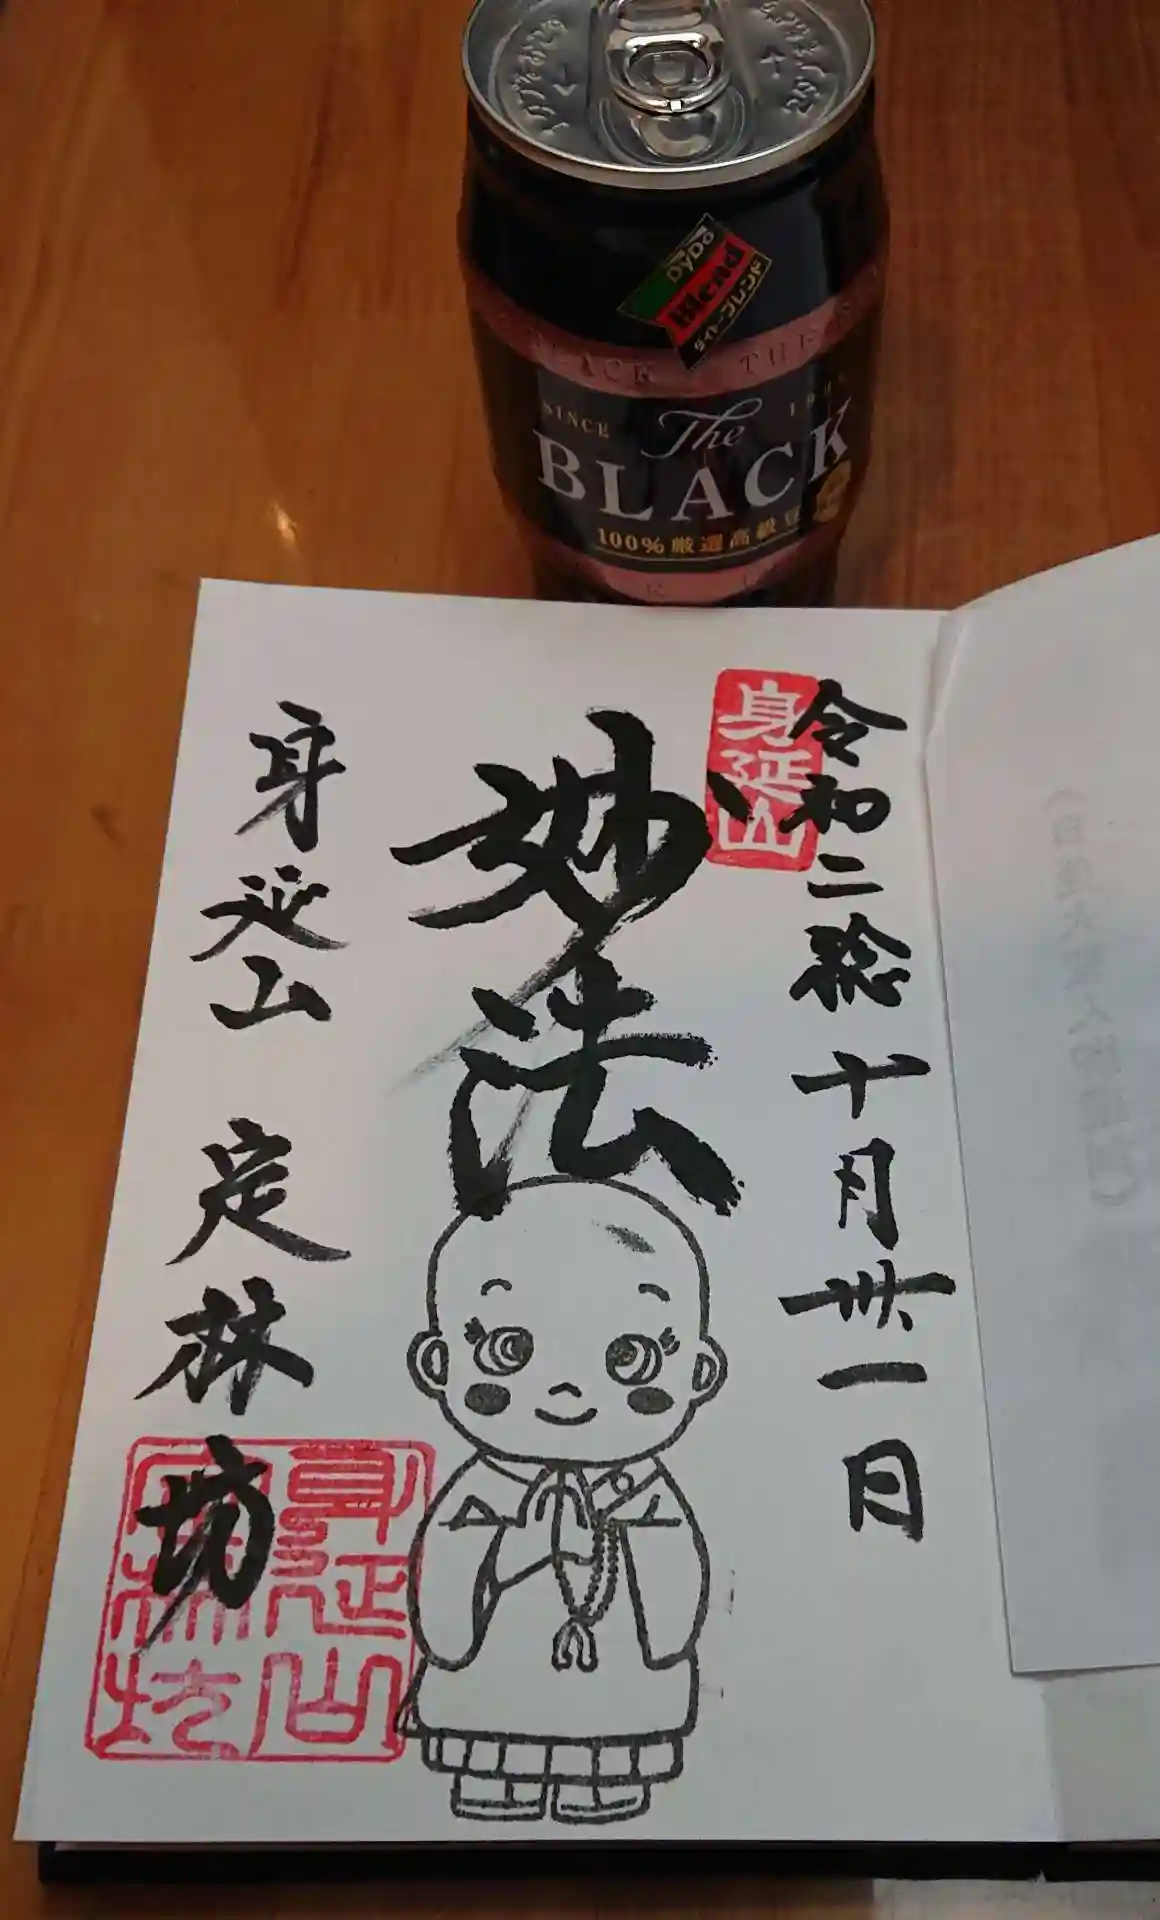 DyDo
Blend
ダイドーブレンド
BLACK THE
SINCE
The
BLACK
100%厳選高級豆
令和二稔十月卅一日
身延山
妙法
身延山 定林坊
身延山
定林坊